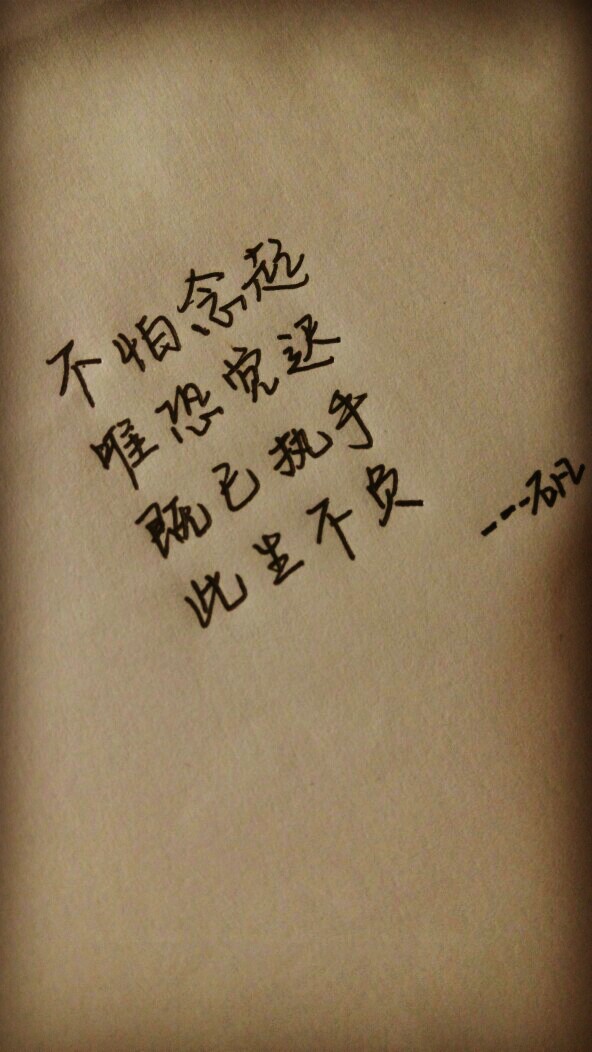 不怕念起
唯恐觉迟
既已执手
此生不负
---矾